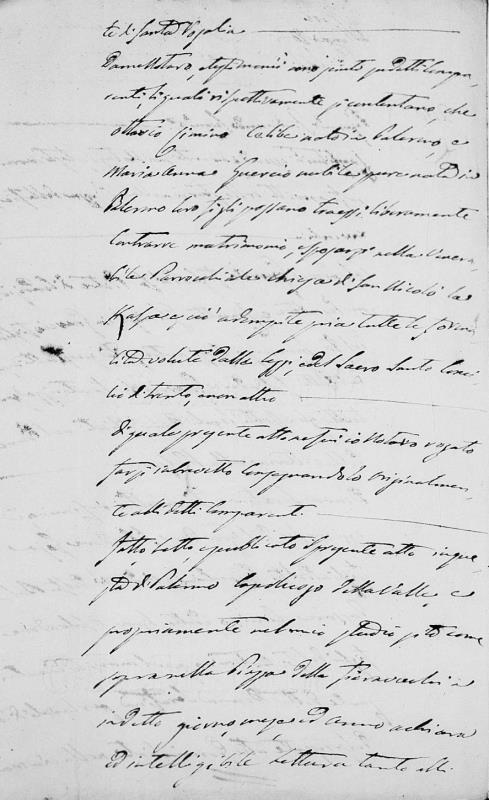 te di Santa Rosalia
Da me Notaro, e testimonii
senti, li quali rispettivamente contentano, che
celibe nato in Palermo, e
Maria Anna Guercio nubile pure nata in
Palermo loro figli possano tra essi liberamente
contrarre matrimonio, e sposarsi nella Venera
bile Parrocchiale chiesa di San Nicolò la
Kalsa e ciò adempite pria tutte le forma
lità volute dalle leggi, e del Sacro Santo Conci
lio di Trento, e non altre
Di quale presente atto ne sono io Notaro rogato
farsi in brevetto consegnandolo originalmen
te alli detti Comparenti
Fatto letto, e pubblicato il presente atto in que
sta di Palermo Capoluogo della Valle, e
propriamente nel mio studio sito come
sopra nella Piazza della Fieravecchia
in detto giorno, mese ed anno a chiara
ed intelligibile lettura tanto alli